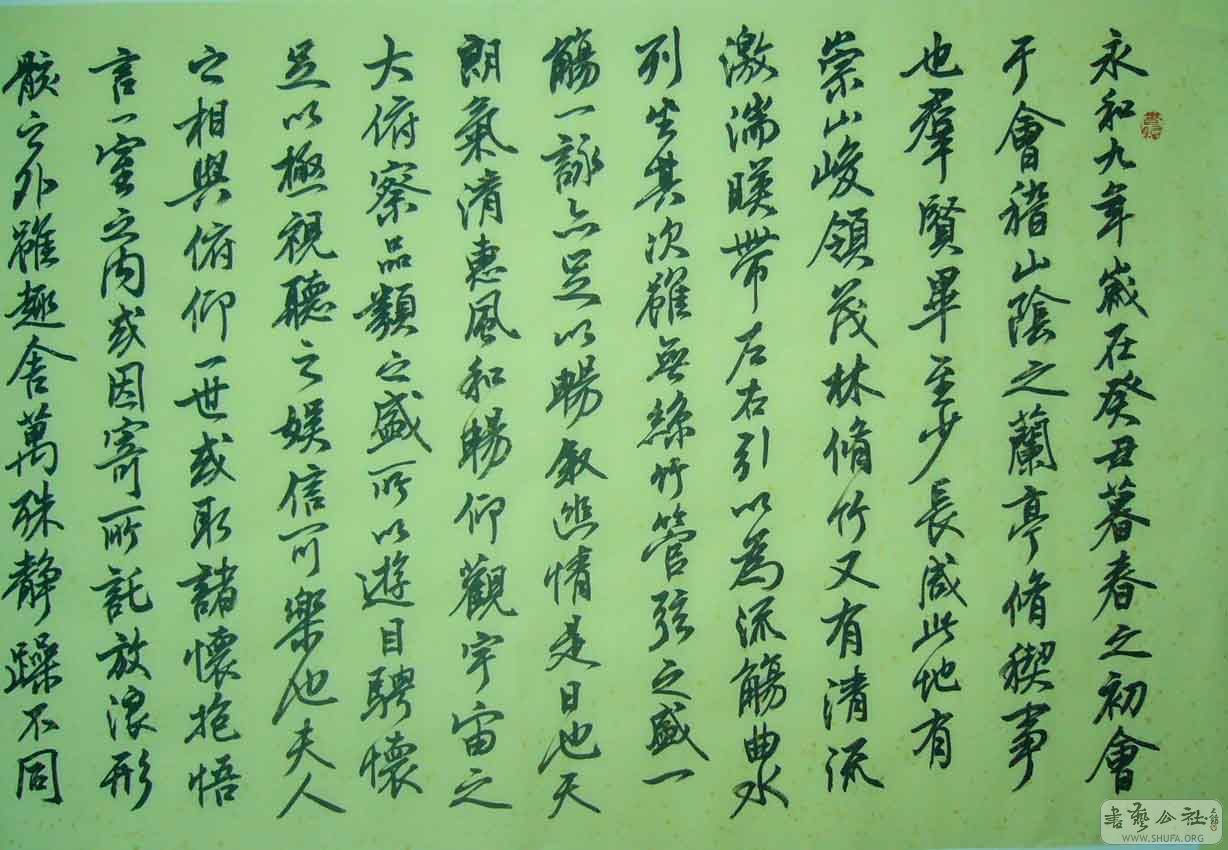 永和九年歲在癸丑暮春之初會
于會稽山陰之蘭亭脩稧事
也羣賢畢至少長咸此地有
崇山峻領茂林脩竹又有清流
激湍暎帶左右引以為流觴曲水
列坐其次雖無絲竹管弦之盛一
觴一詠亦足以暢叙幽情是日也天
朗氣清惠風和暢仰觀宇宙之
大俯察品類之盛所以遊目騁懷
足以極視聽之娛信可樂也夫人
之相與俯仰一世或取諸懷抱悟
言一室之內或因寄所託放浪形
骸之外雖趣舍萬殊靜躁不同
書藝公社
WWW.SHUFA.ORG